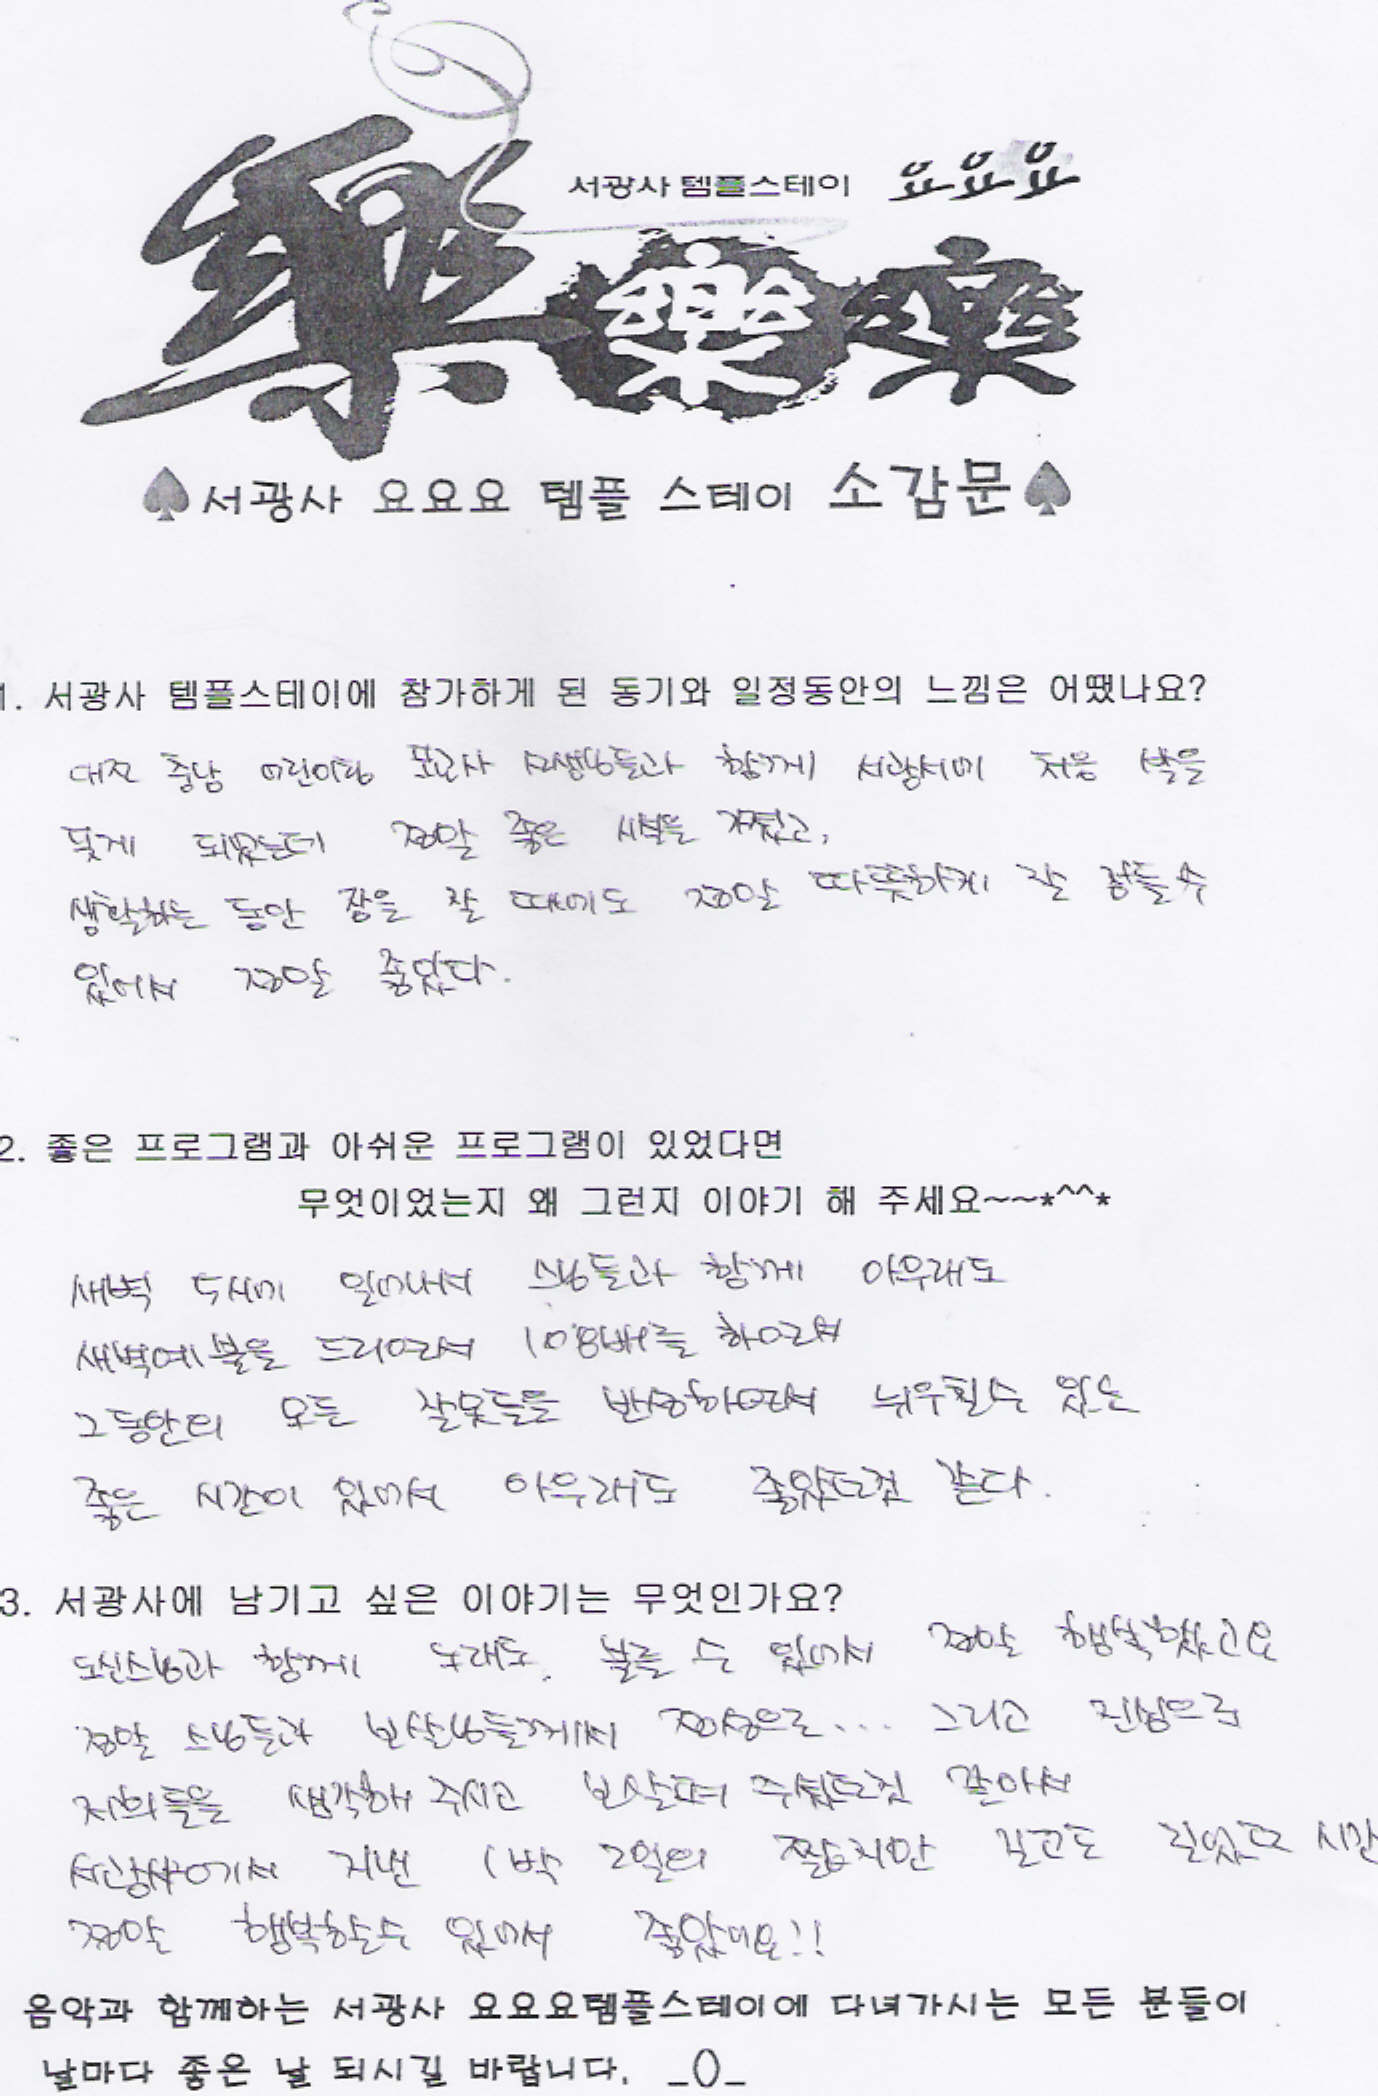 서광사 템플스테이 요요요
樂 樂 樂
♠서광사 요요요 템플 스테이 소감문♠
1. 서광사 템플스테이에 참가하게 된 동기와 일정동안의 느낌은 어땠나요?
대전 충남 어린이팀 포교사 선생님들과 함께 서광사에 처음 발을
딛게 되었는데 정말 좋은 시설을 갖췄고,
생활하는 동안 잠을 잘 때에도 정말 따뜻하게 잘 잠들수
있어서 정말 좋았다.
2. 좋은 프로그램과 아쉬운 프로그램이 있었다면
무엇이었는지 왜 그런지 이야기 해 주세요~~*^^*
새벽 두시에 일어나서 스님들과 함께 아무래도
새벽예불을 드리면서 108배를 하면서
그동안의 모든 잘못들을 반성하면서 뉘우칠수 있는
좋은 시간이 있어서 아무래도 좋았던것 같다.
3. 서광사에 남기고 싶은 이야기는 무엇인가요?
도신스님과 함께 노래도 부를 수 있어서 정말 행복했고요
정말 스님들과 보살님들께서 정성으로... 그리고 진심으로
저희들을 생각해 주시고 보살펴 주셨던것 같아서
서광사에서 지낸 1박 2일의 짧지만 길고도 길었던 시간
정말 행복할수 있어서 좋았어요!!
음악과 함께하는 서광사 요요요템플스테이에 다녀가시는 모든 분들이
날마다 좋은 날 되시길 바랍니다. _()_